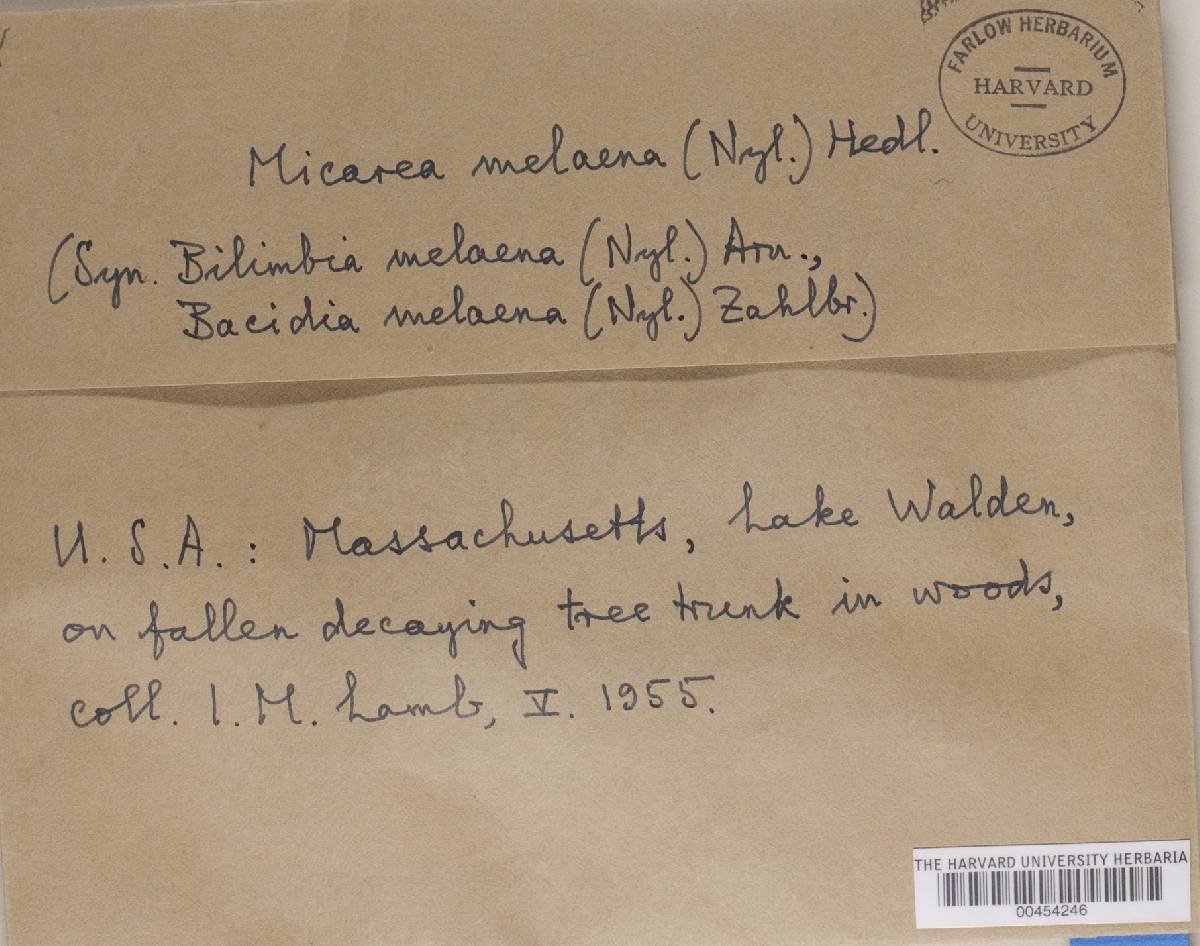 FARLOW HERBARIUM
HARVARD
UNIVERSITY
Micarea melaena (Nyl.) Hedl.
(Syn. Bilimbia melaena (Nyl.) Arn.,
Bacidia melaena (Nyl.) Zahlbr.)
U.S.A.: Massachusetts, Lake Walden,
on fallen decaying tree trunk in woods,
coll. I.M. Lamb, V. 1955.
THE HARVARD UNIVERSITY HERBARIA
00454246